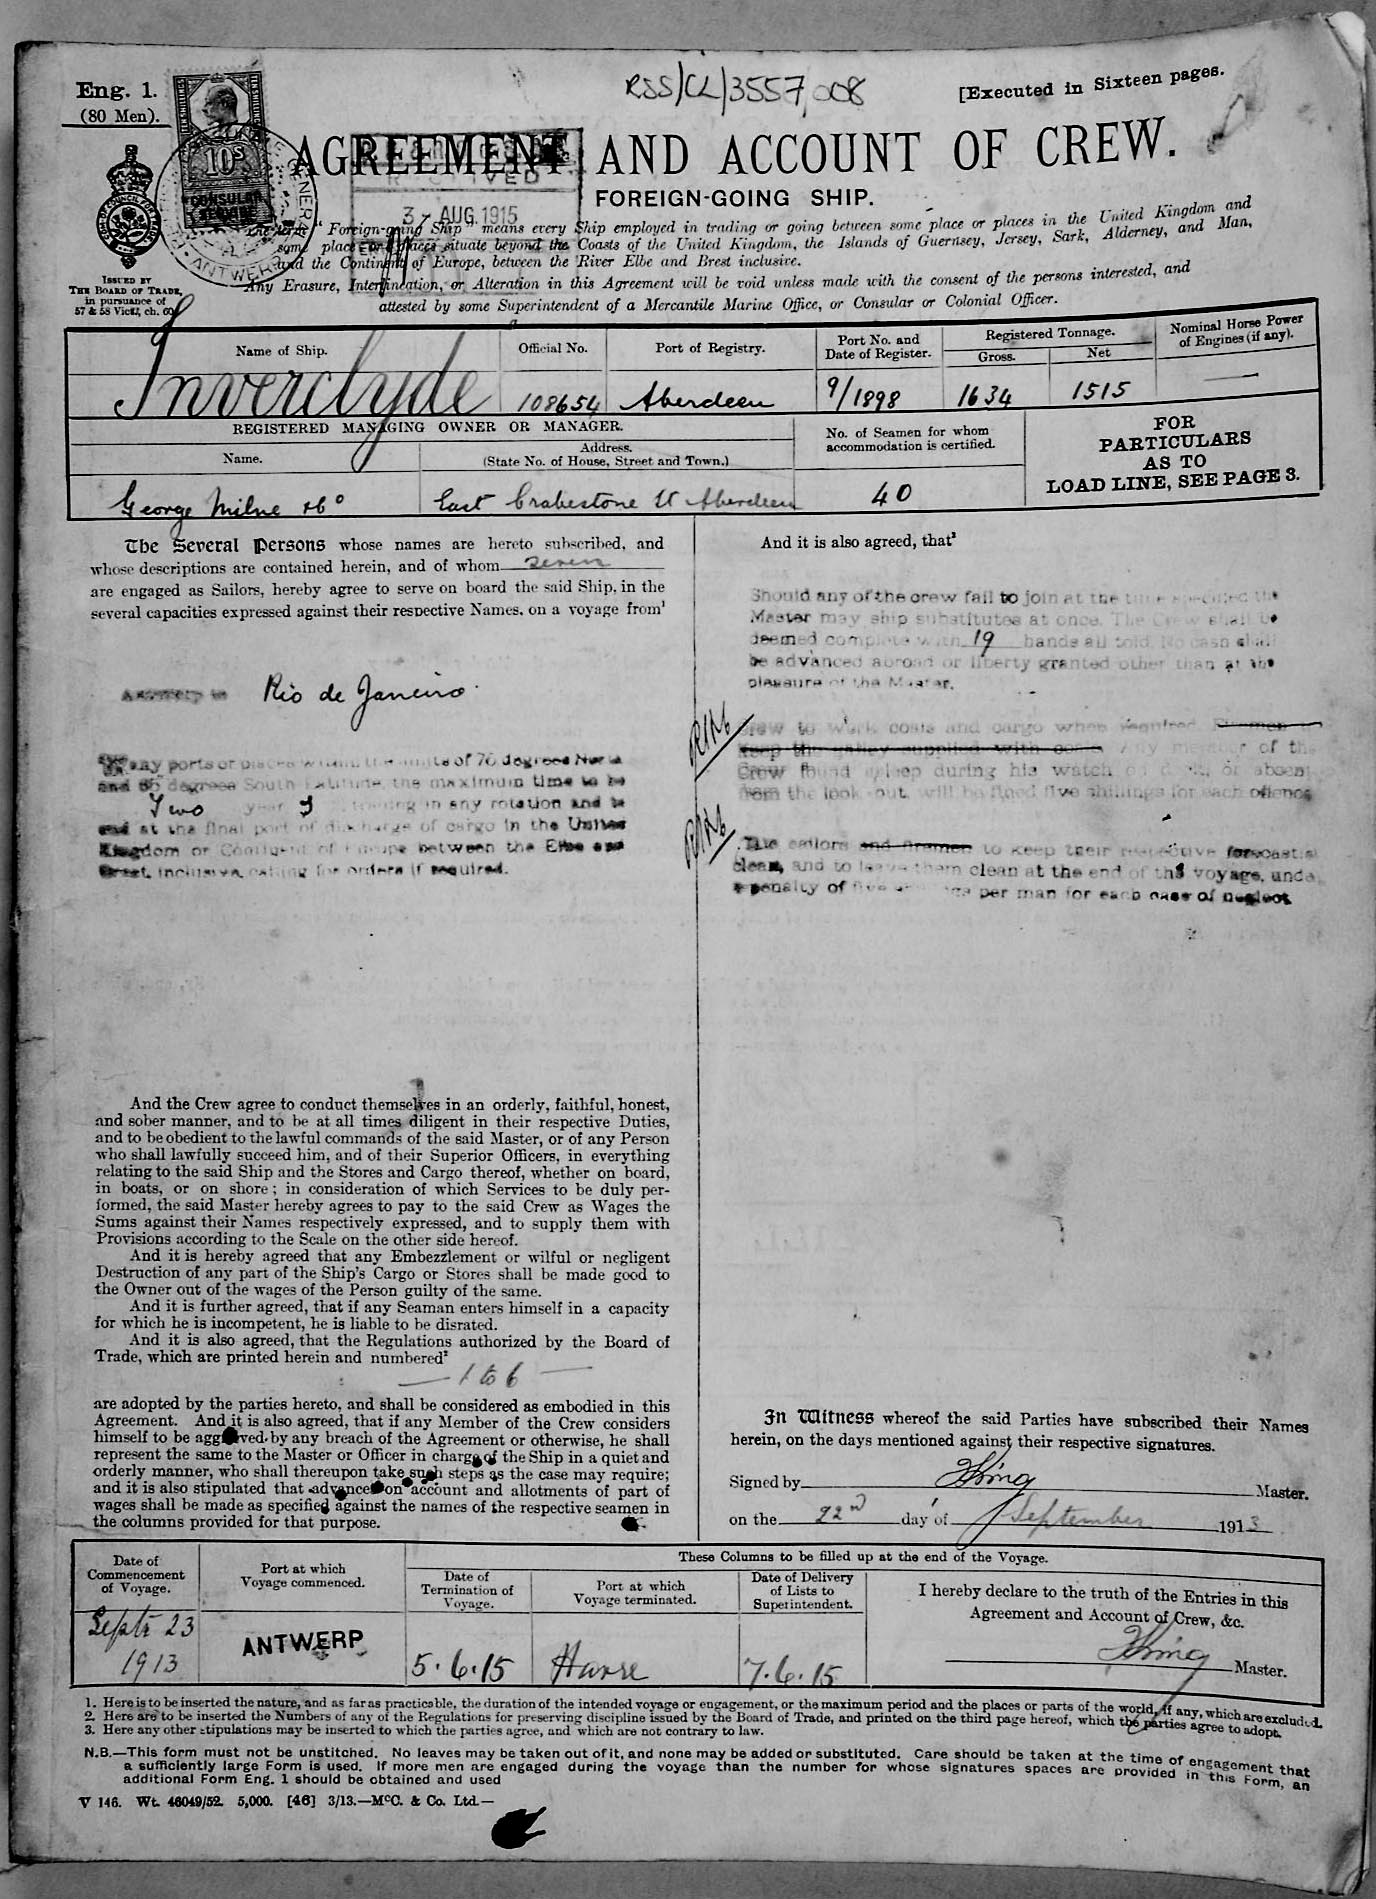 Eng. 1.
(80 Men).
RSS/CL/3557/008
[Executed in Sixteen pages.
10s
CONSULAR
ANTWERP
AGREEMENT AND ACCOUNT OF CREW.
RECEIVED
FOREIGN-GOING SHIP.
3 - AUG. 1915
The term "Foreign-going Ship" means every Ship employed in trading or going between some place or places in the United Kingdom and
some place or places situate beyond the Coasts of the United Kingdom, the Islands of Guernsey, Jersey, Sark, Alderney, and Man,
and the Continent of Europe, between the River Elbe and Brest inclusive.
Any Erasure, Interlineation, or Alteration in this Agreement will be void unless made with the consent of the persons interested, and
attested by some Superintendent of a Mercantile Marine Office, or Consular or Colonial Officer.
ISSUED BY
THE BOARD OF TRADE,
in pursuance of
57 & 58 Vict., ch. 60
Name of Ship.
Official No.
Port of Registry.
Port No. and
Date of Register.
Registered Tonnage.
Gross.
Net
Nominal Horse Power
of Engines (if any).
Inverclyde
108654
Aberdeen
9/1898
1634
1515
—
REGISTERED MANAGING OWNER OR MANAGER.
Name.
Address.
(State No. of House, Street and Town.)
No. of Seamen for whom
accommodation is certified.
FOR
PARTICULARS
AS TO
LOAD LINE, SEE PAGE 3.
George Milne & Co
East Crabestone St Aberdeen
40
The Several Persons whose names are hereto subscribed, and
whose descriptions are contained herein, and of whom seven
are engaged as Sailors, hereby agree to serve on board the said Ship, in the
several capacities expressed against their respective Names, on a voyage from¹
Antwerp to Rio de Janeiro.
any ports or places within the limits of 75 degrees North
and 65 degrees South Latitude, the maximum time to be
Two years trading in any rotation and to
end at the final port of discharge of cargo in the United
Kingdom or Continent of Europe between the Elbe and
Brest, inclusive, calling for orders if required.
And the Crew agree to conduct themselves in an orderly, faithful, honest,
and sober manner, and to be at all times diligent in their respective Duties,
and to be obedient to the lawful commands of the said Master, or of any Person
who shall lawfully succeed him, and of their Superior Officers, in everything
relating to the said Ship and the Stores and Cargo thereof, whether on board,
in boats, or on shore; in consideration of which Services to be duly per-
formed, the said Master hereby agrees to pay to the said Crew as Wages the
Sums against their Names respectively expressed, and to supply them with
Provisions according to the Scale on the other side hereof.
And it is hereby agreed that any Embezzlement or wilful or negligent
Destruction of any part of the Ship's Cargo or Stores shall be made good to
the Owner out of the wages of the Person guilty of the same.
And it is further agreed, that if any Seaman enters himself in a capacity
for which he is incompetent, he is liable to be disrated.
And it is also agreed, that the Regulations authorized by the Board of
Trade, which are printed herein and numbered²
— 1 to 6 —
are adopted by the parties hereto, and shall be considered as embodied in this
Agreement. And it is also agreed, that if any Member of the Crew considers
himself to be aggrieved by any breach of the Agreement or otherwise, he shall
represent the same to the Master or Officer in charge of the Ship in a quiet and
orderly manner, who shall thereupon take such steps as the case may require;
and it is also stipulated that advances on account and allotments of part of
wages shall be made as specified against the names of the respective seamen in
the columns provided for that purpose.
And it is also agreed, that³
Should any of the crew fail to join at the time specified the
Master may ship substitutes at once. The Crew shall be
deemed complete with 19 hands all told. No cash shall
be advanced abroad or liberty granted other than at the
pleasure of the Master.
Crew to work coals and cargo when required. Firemen to
keep the galley supplied with coals. Any member of the
Crew found asleep during his watch on deck, or absent
from the look-out, will be fined five shillings for each offence
The sailors and firemen to keep their respective forecastle
clean, and to leave them clean at the end of the voyage, under
a penalty of five shillings per man for each case of neglect
In Witness whereof the said Parties have subscribed their Names
herein, on the days mentioned against their respective signatures.
Signed by King Master.
on the 22nd day of September 1913
Date of
Commencement
of Voyage.
Port at which
Voyage commenced.
These Columns to be filled up at the end of the Voyage.
Date of
Termination of
Voyage.
Port at which
Voyage terminated.
Date of Delivery
of Lists to
Superintendent.
I hereby declare to the truth of the Entries in this
Agreement and Account of Crew, &c.
Septr 23
1913
ANTWERP
5.6.15
Havre
7.6.15
King Master.
1. Here is to be inserted the nature, and as far as practicable, the duration of the intended voyage or engagement, or the maximum period and the places or parts of the world, if any, which are excluded.
2. Here are to be inserted the Numbers of any of the Regulations for preserving discipline issued by the Board of Trade, and printed on the third page hereof, which the parties agree to adopt.
3. Here any other stipulations may be inserted to which the parties agree, and which are not contrary to law.
N.B.—This form must not be unstitched. No leaves may be taken out of it, and none may be added or substituted. Care should be taken at the time of engagement that
a sufficiently large Form is used. If more men are engaged during the voyage than the number for whose signatures spaces are provided in this Form, an
additional Form Eng. 1 should be obtained and used
V 146. Wt. 46049/52. 5,000. [46] 3/13.—McC. & Co. Ltd.—